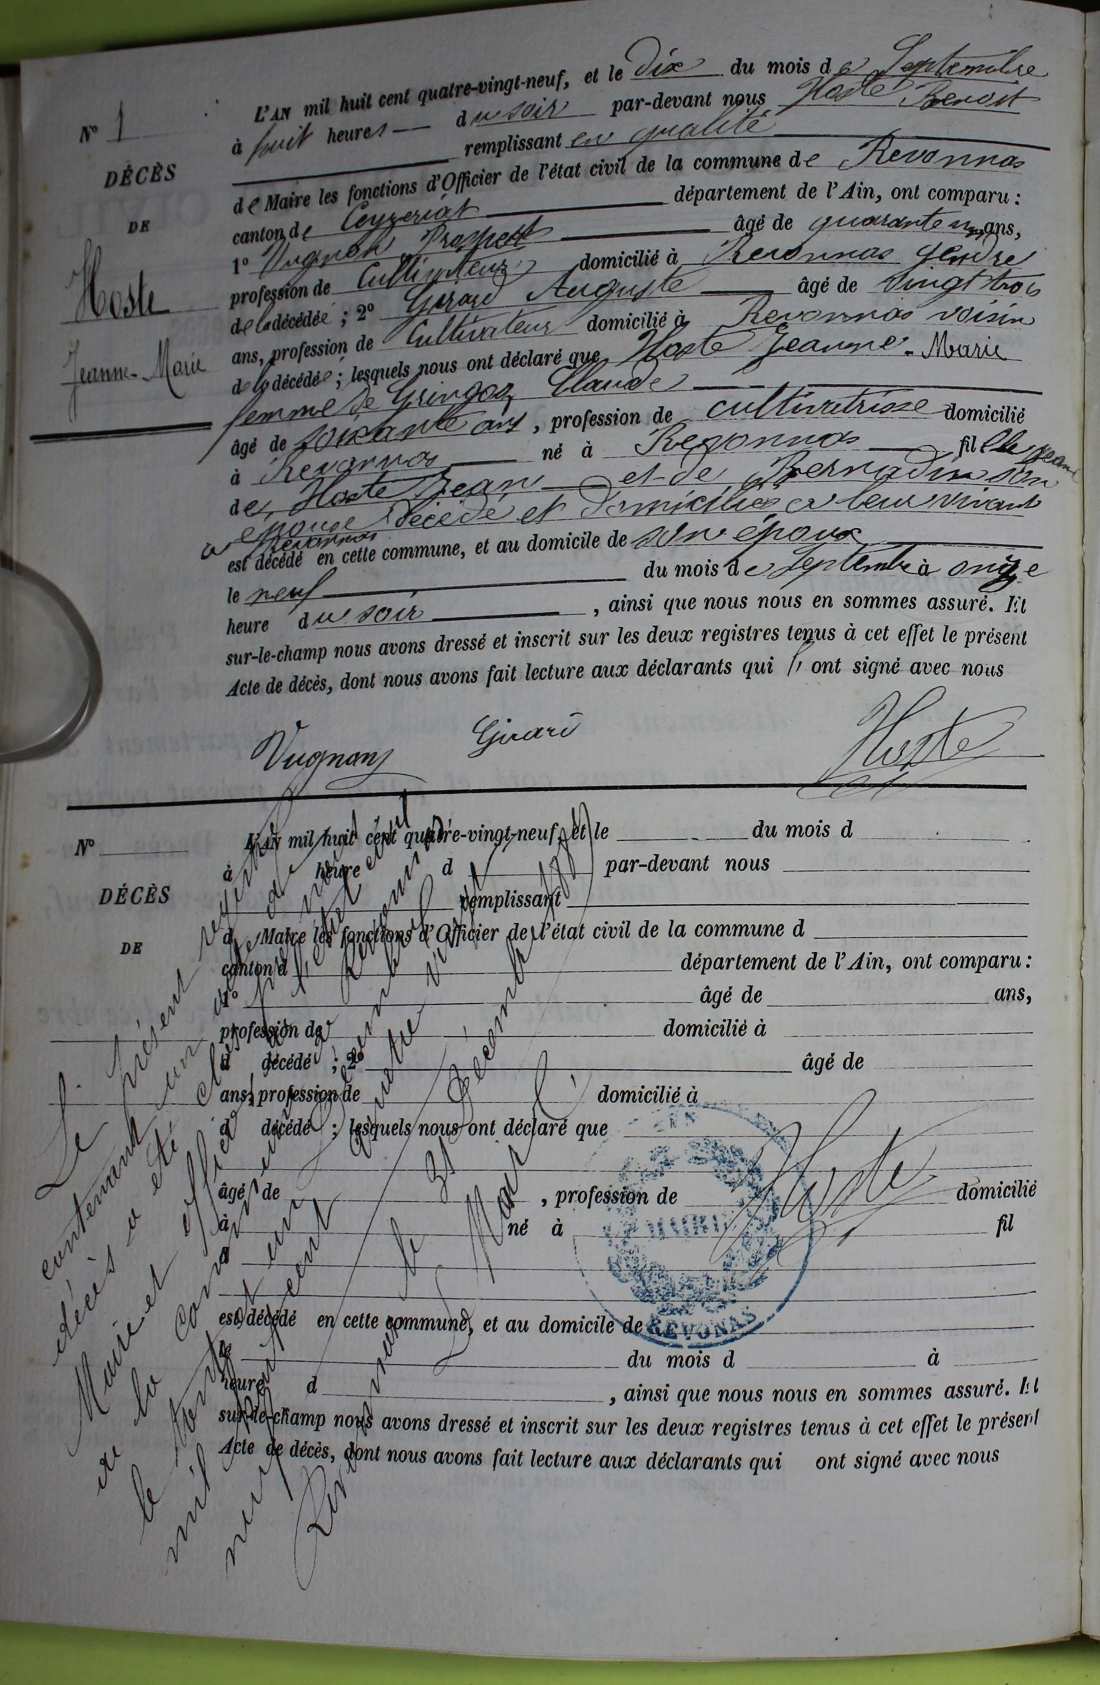 N° 1
DÉCÈS
DE
Hoste
Jeanne-Marie
L'AN mil huit cent quatre-vingt-neuf, et le dix du mois de Septembre
à huit heures du soir par-devant nous Hoste Benoit
remplissant en qualité
de Maire les fonctions d'Officier de l'état civil de la commune de Revonnas
canton de Ceyzeriat département de l'Ain, ont comparu :
1° Vugnon Prospert âgé de quarante un ans,
profession de Cultivateur domicilié à Revonnas gendre
de la décédée ; 2° Girard Auguste âgé de vingt trois
ans, profession de Cultivateur domicilié à Revonnas voisin
de la décédée ; lesquels nous ont déclaré que Hoste Jeanne-Marie
femme de Gringoz Claude
âgé de soixante ans, profession de cultivatrice domicilié
à Revonnas né à Revonnas fille
de Hoste Jean et de Bernadin son
épouse décédé et domiciliés à leur vivant
à Revonnas
est décédé en cette commune, et au domicile de son époux
le neuf du mois de Septembre à onze
heure du soir, ainsi que nous nous en sommes assuré. Et
sur-le-champ nous avons dressé et inscrit sur les deux registres tenus à cet effet le présent
Acte de décès, dont nous avons fait lecture aux déclarants qui ont signé avec nous
Vugnon Girard Hoste
N°
DÉCÈS
DE
L'AN mil huit cent quatre-vingt-neuf, et le du mois d
à heure d par-devant nous
remplissant
d Maire les fonctions d'Officier de l'état civil de la commune d
canton d département de l'Ain, ont comparu :
1° âgé de ans,
profession de domicilié à
d décédé ; 2° âgé de
ans, profession de domicilié à
d décédé ; lesquels nous ont déclaré que
âgé de , profession de domicilié
à né à fil
d
est décédé en cette commune, et au domicile de
le du mois d à
heure d , ainsi que nous nous en sommes assuré. Et
sur-le-champ nous avons dressé et inscrit sur les deux registres tenus à cet effet le présent
Acte de décès, dont nous avons fait lecture aux déclarants qui ont signé avec nous
Le présent registre
contenant un acte de
décès a été clos par nous
Maire et officier de l'état civil
de la commune de Revonnas
le trente et un Décembre
mil huit cent quatre vingt
neuf
Revonnas le 31 Décembre 1889
Le Maire
Hoste
MAIRIE
REVONAS